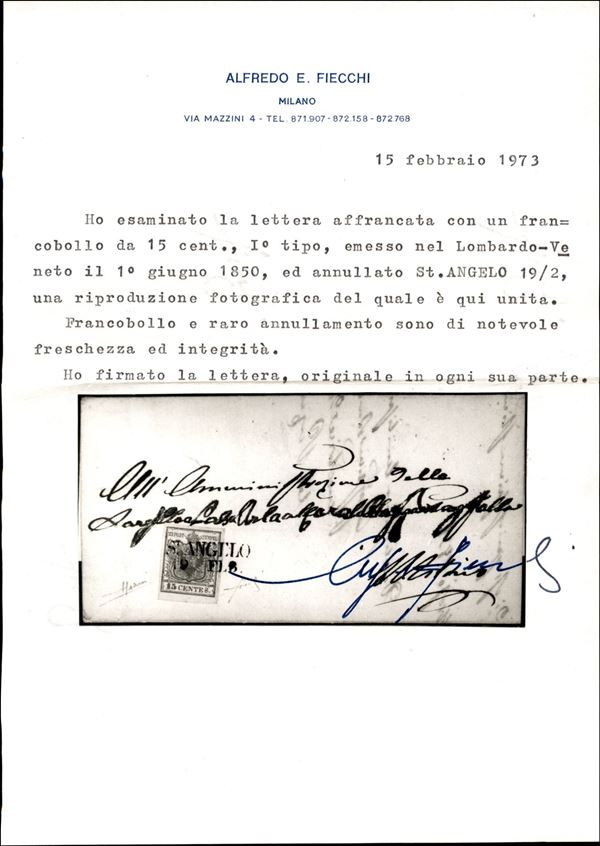 ALFREDO E. FIECCHI
MILANO
VIA MAZZINI 4 - TEL. 871.907 - 872.158 - 872.768
15 febbraio 1973
Ho esaminato la lettera affrancata con un fran=
cobollo da 15 cent., I° tipo, emesso nel Lombardo-Ve
neto il 1° giugno 1850, ed annullato St.ANGELO 19/2,
una riproduzione fotografica del quale è qui unita.
Francobollo e raro annullamento sono di notevole
freschezza ed integrità.
Ho firmato la lettera, originale in ogni sua parte.
All' Amministrazione della
St. ANGELO
FEB.
15 CENTES.